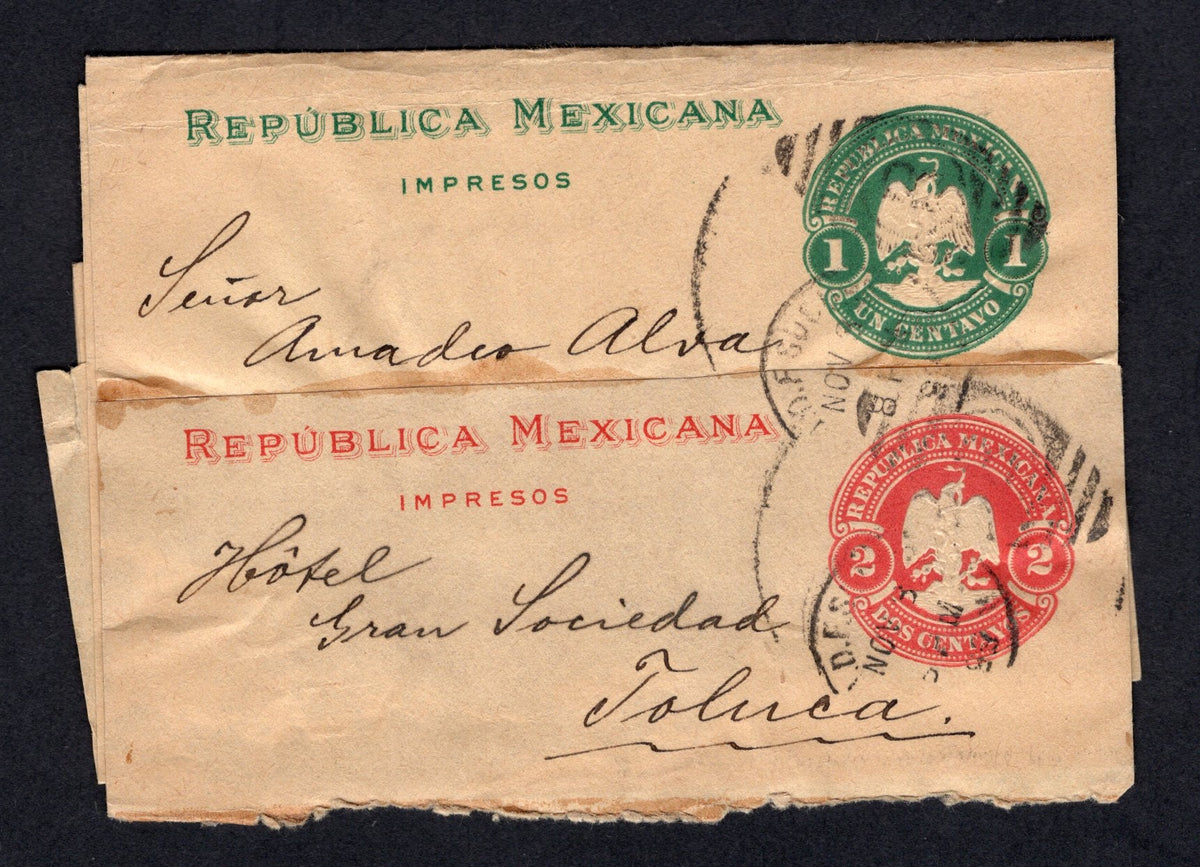 REPÚBLICA MEXICANA
IMPRESOS
REPUBLICA MEXICANA
1 1
UN CENTAVO
Señor
Amadeo Alva
D.F.
NOV
REPÚBLICA MEXICANA
IMPRESOS
REPUBLICA MEXICANA
2 2
DOS CENTAVOS
Hôtel
Gran Sociedad
Toluca.
D.F.
NOV